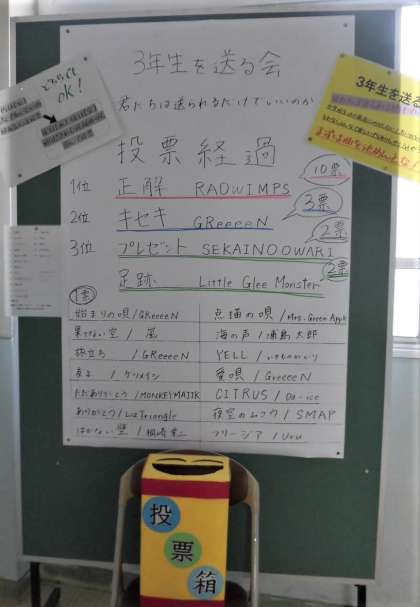 3年生を送る会
君たちは送られるだけでいいのか
投票経過
1位 正解 RADWIMPS 10票
2位 キセキ GReeeeN 3票
3位 プレゼント SEKAINOOWARI 2票
足跡 Little Glee Monster 2票
1票
始まりの唄/GReeeeN
点描の唄/Mrs. Green Apple
果てない空/嵐
海の声/浦島太郎
旅立ち/GReeeeN
YELL/いきものがかり
友よ/ケツメイシ
愛唄/GreeeeN
ただありがとう/MONKEY MAJIK
CITRUS/Da-ice
ありがとう/Lia Triangle
夜空のムコウ/SMAP
はかない
フリージア/Uru
どちらでも
OK!
3年生を送る
投票箱